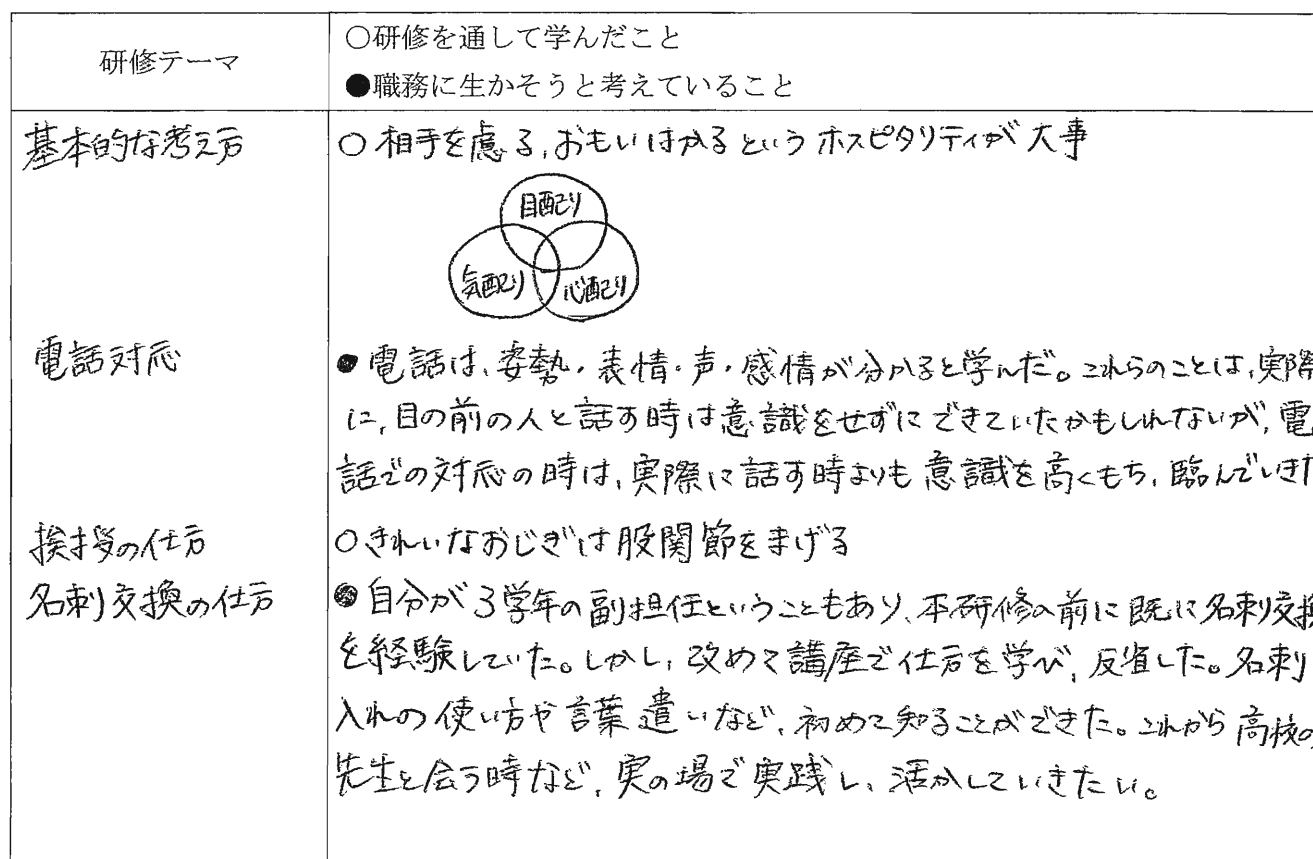 研修テーマ
○研修を通して学んだこと
●職務に生かそうと考えていること
基本的な考え方
○相手を慮る、おもいはかるというホスピタリティが大事
目配り
気配り
心配り
電話対応
●電話は、姿勢・表情・声・感情が分かると学んだ。これらのことは、実際
に、目の前の人と話す時は意識をせずにできていたかもしれないが、電
話での対応の時は、実際に話す時よりも意識を高くもち、臨んでいきた
挨拶の仕方
○きれいなおじぎは股関節をまげる
名刺交換の仕方
●自分が3学年の副担任ということもあり、本研修の前に既に名刺交換
を経験していた。しかし、改めて講座で仕方を学び、反省した。名刺
入れの使い方や言葉遣いなど、初めて知ることができた。これから高校の
先生と会う時など、実の場で実践し、活かしていきたい。